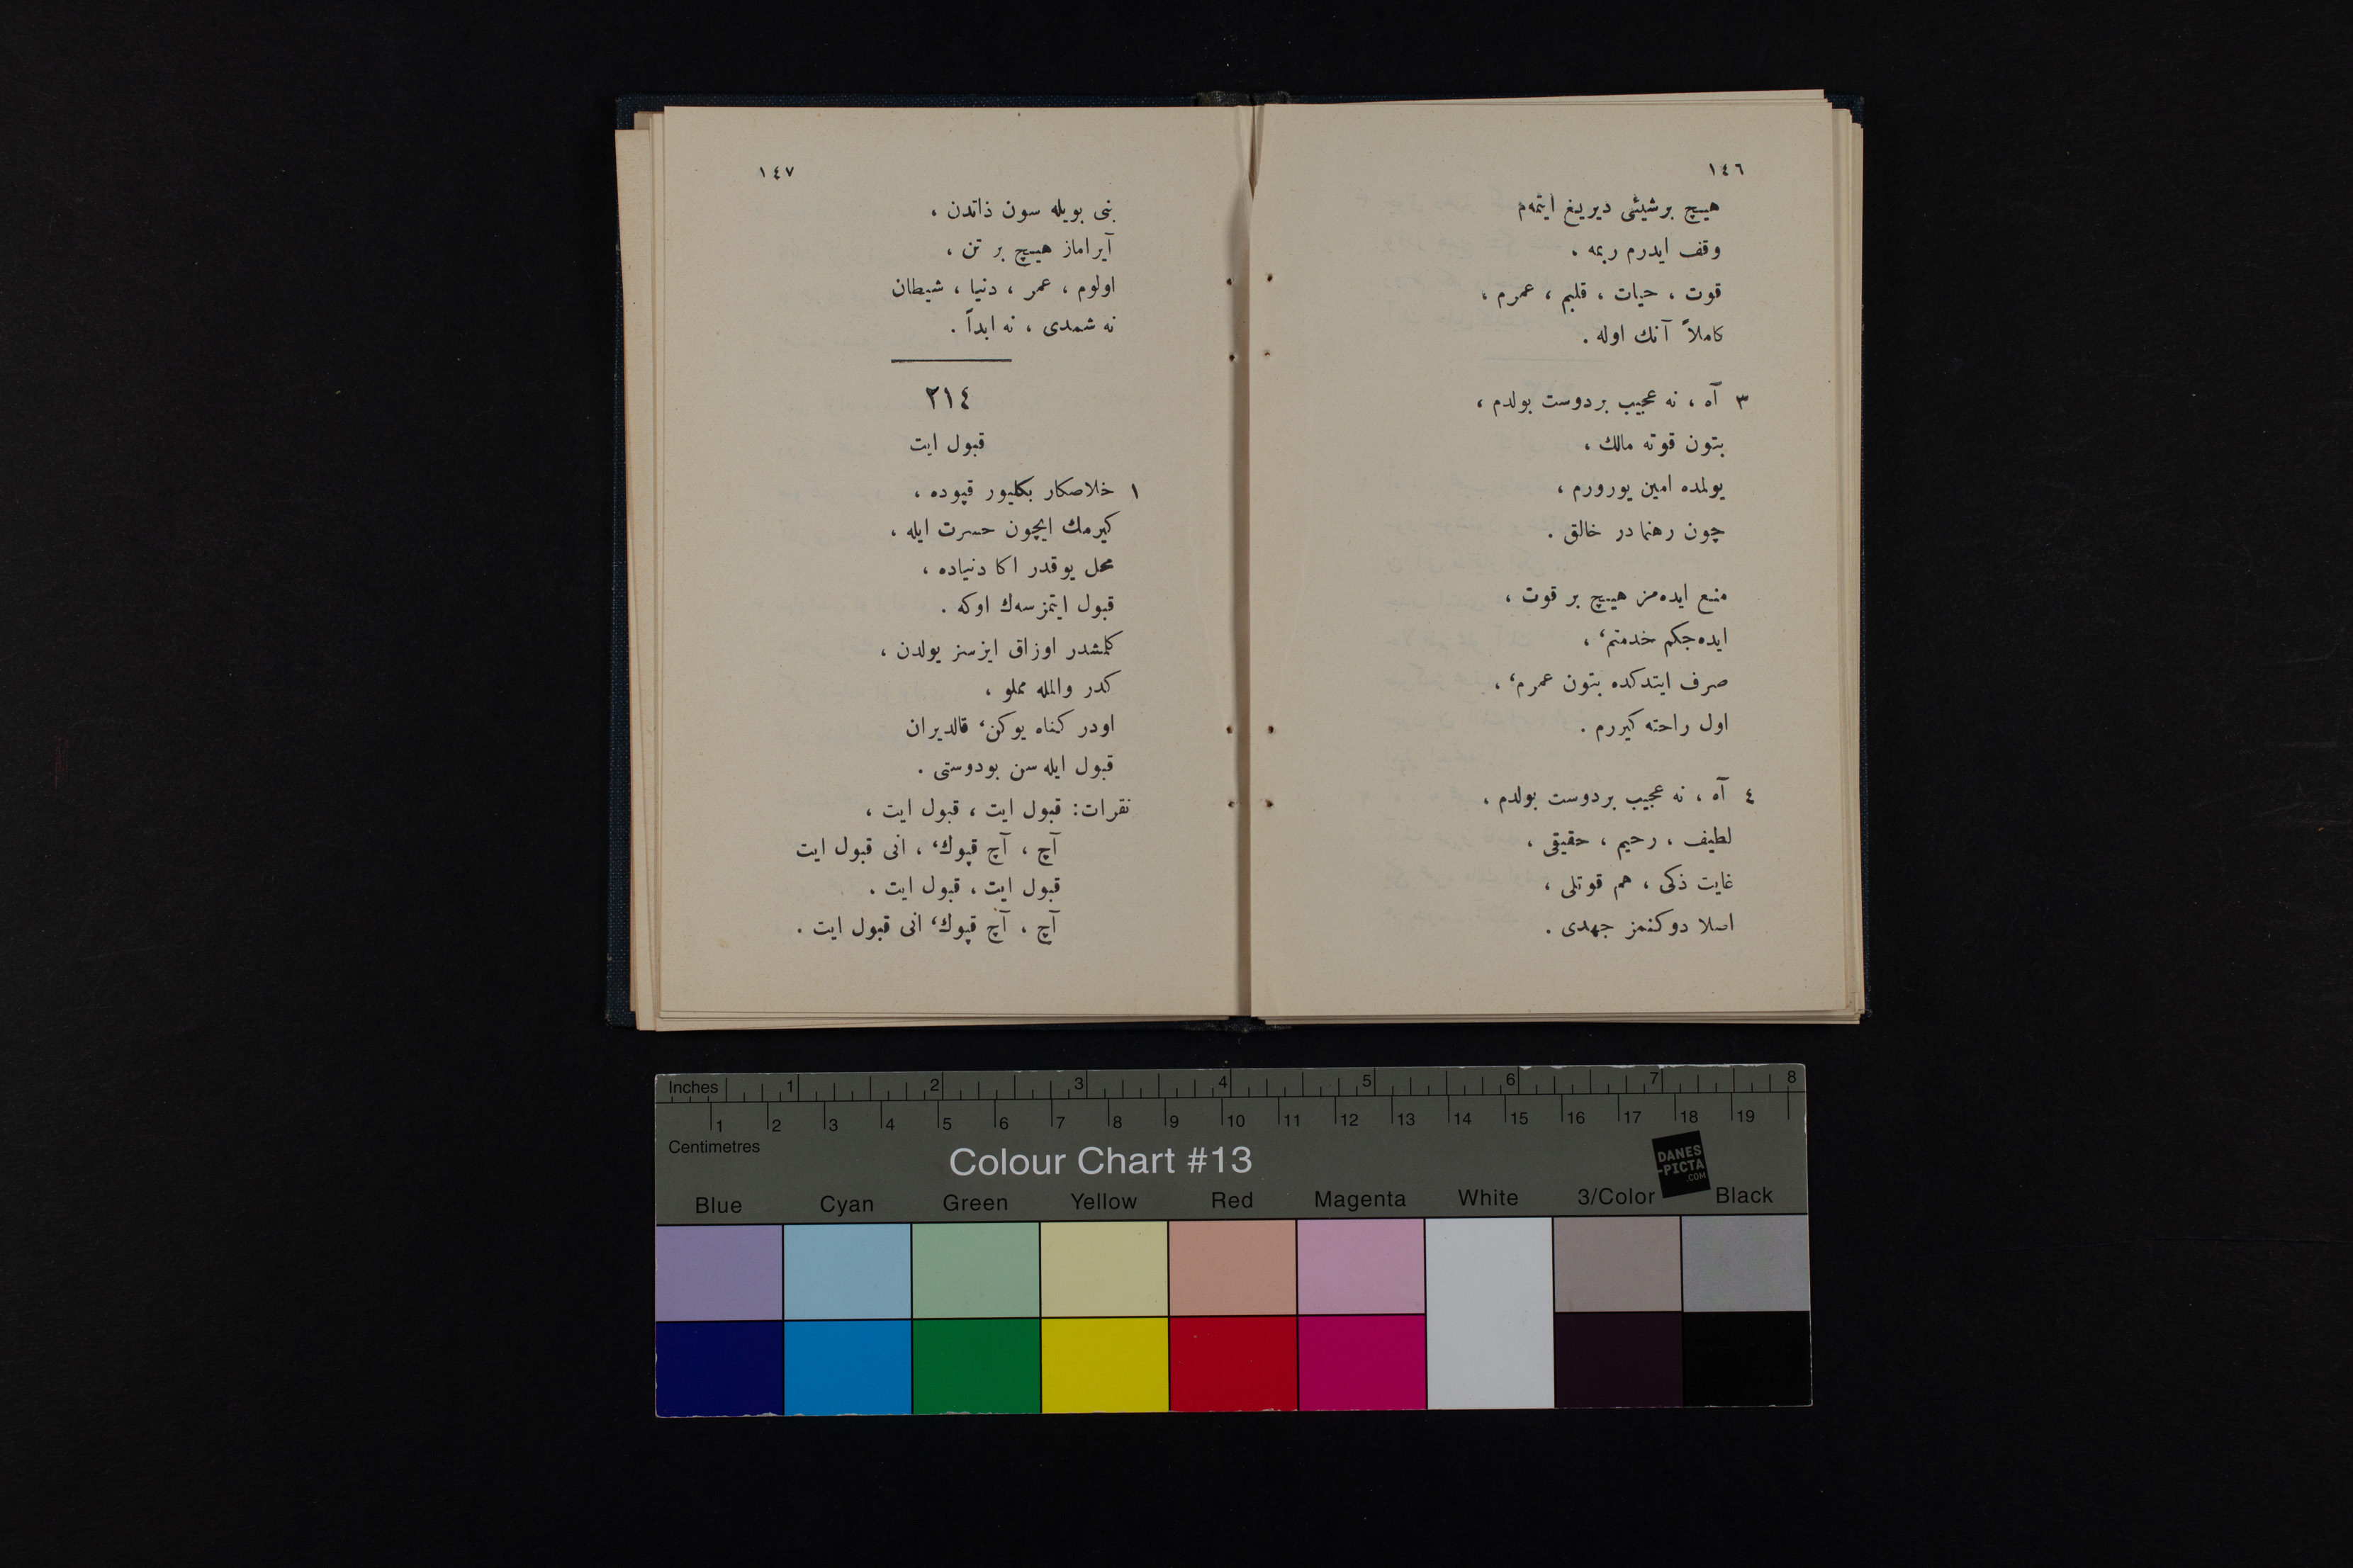 ١٤٦
هیچ برشیئی دیریغ ایتمه‌م
وقف ایدرم ربمه .
قوت ، حیات ، قلبم ، عمرم ،
کاملاً آنك اوله .
٣ آه ، نه عجیب بردوست بولدم ،
بتون قوته مالك ،
یولمده امین یورورم ،
چون رهنمادر خالق .
منع ایده‌مز هیچ بر قوت ،
ایده‌جکم خدمتم‌ٔ ،
صرف ایتدکده بتون عمرم‌ٔ ،
اول راحته کیررم .
٤ آه ، نه عجیب بردوست بولدم ،
لطیف ، رحیم ، حقیقی ،
غایت ذکی ، هم قوتلی ،
اصلا دوکنمز جهدی .
١٤٧
بنی بویله سون ذاتدن ،
آیراماز هیچ بر تن ،
اولوم ، عمر ، دنیا ، شیطان
نه شمدی ، نه ابداً .
٢١٤
قبول ایت
١ خلاصکار بکلیور قپوده ،
کیرمك ایچون حسرت ایله ،
محل یوقدر اکا دنیاده ،
قبول ایتمزسه‌ك اوکه .
کلمشدر اوزاق ایزسز یولدن ،
کدر والمله مملو ،
اودر کناه یوکن‌ٔ قالدیران
قبول ایله سن بودوستی .
نقرات: قبول ایت ، قبول ایت ،
آچ ، آچ قپوك‌ٔ ، انی قبول ایت
قبول ایت ، قبول ایت .
آچ ، آچ قپوك‌ٔ انی قبول ایت .
Inches 1 2 3 4 5 6 7 8
1 2 3 4 5 6 7 8 9 10 11 12 13 14 15 16 17 18 19
Centimetres
Colour Chart #13
DANES
-PICTA
.COM
Blue Cyan Green Yellow Red Magenta White 3/Color Black